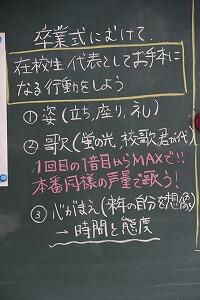 卒業式にむけて
在校生代表としてお手本に
なる行動をしよう
① 姿(立ち,座り,礼)
② 歌(蛍の光,校歌,君が代)
1回目の1音目からMAXで!!
本番同様の声量で歌う!
③ 心がまえ(来年の自分を想像)
→ 時間と態度